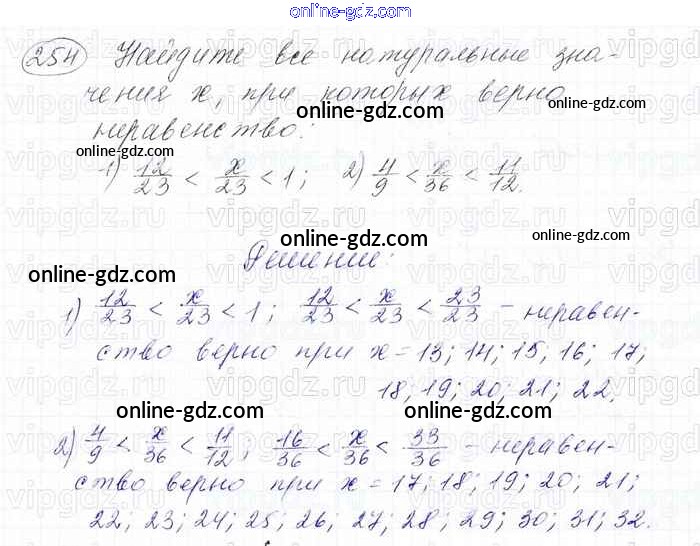 online-gdz.com
254 Найдите все натуральные зна-
чения x, при которых верно
online-gdz.com
online-gdz.com
неравенство:
online-gdz.com
1) 12/23 < x/23 < 1; 2) 4/9 < x/36 < 11/12.
online-gdz.com
online-gdz.com
Решение:
online-gdz.com
1) 12/23 < x/23 < 1; 12/23 < x/23 < 23/23 – неравен-
ство верно при x = 13; 14; 15; 16; 17;
18; 19; 20; 21; 22.
online-gdz.com
online-gdz.com
2) 4/9 < x/36 < 11/12; 16/36 < x/36 < 33/36 – неравен-
ство верно при x = 17; 18; 19; 20; 21;
22; 23; 24; 25; 26; 27; 28; 29; 30; 31; 32.